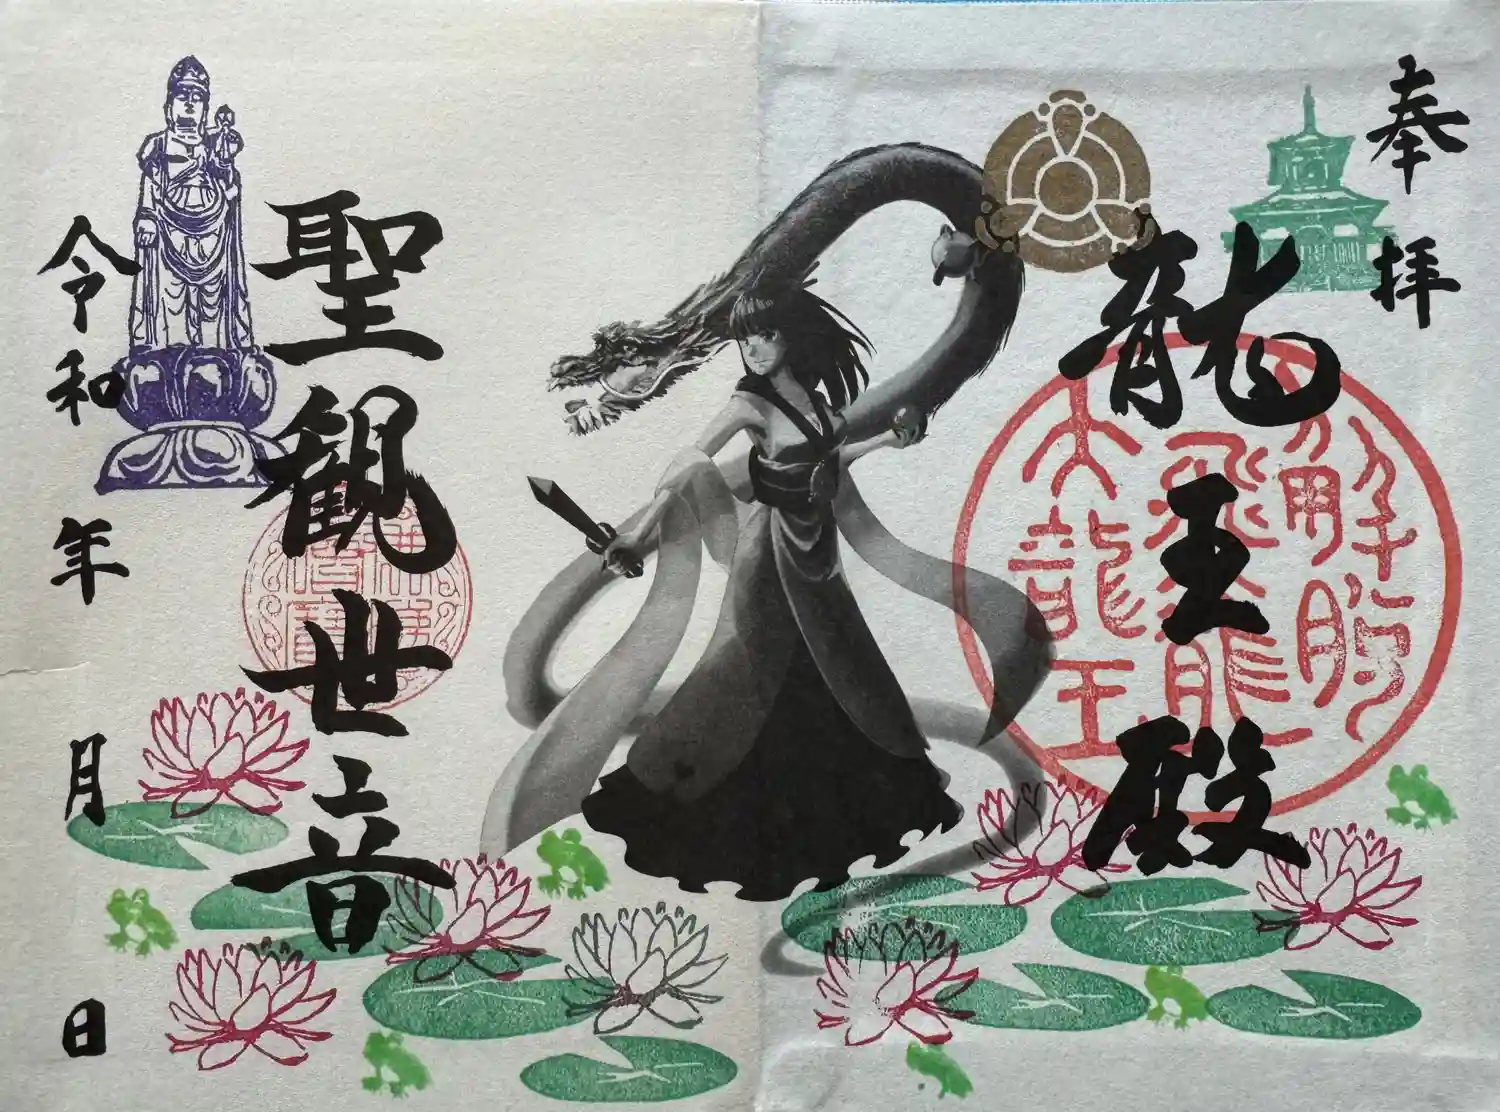 奉拝
龍王殿
解脱
飛龍
大龍王
聖観世音
令和 年 月 日